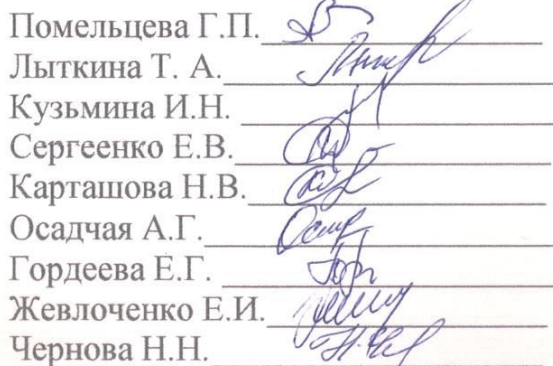 Помельцева Г.П.
Лыткина Т. А.
Кузьмина И.Н.
Сергеенко Е.В.
Карташова Н.В.
Осадчая А.Г.
Гордеева Е.Г.
Жевлоченко Е.И.
Чернова Н.Н.